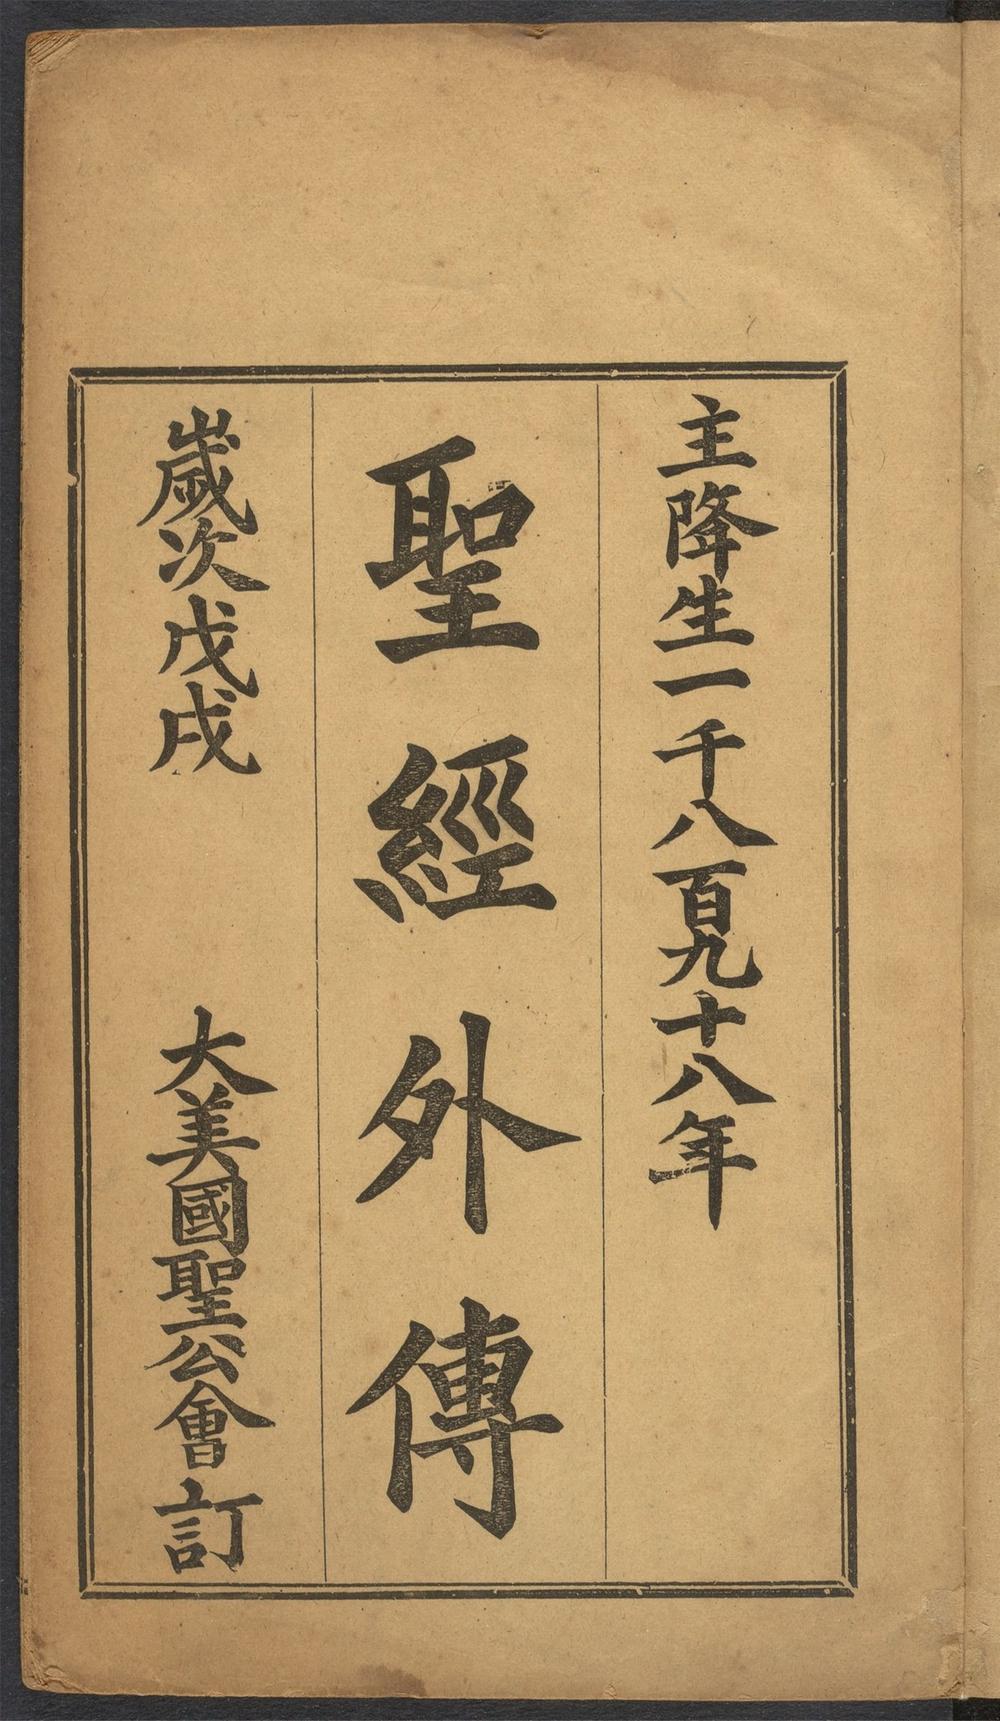 主降生一千八百九十八年
聖經外傳
歲次戊戌
大美國聖公會訂